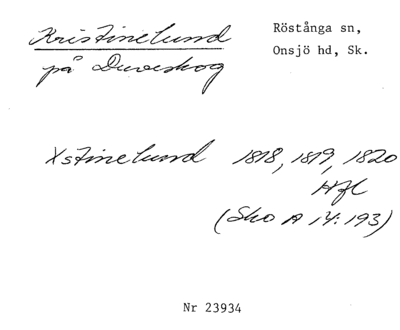 Kristinelund
på Duveskog
Röstånga sn,
Onsjö hd, Sk.
Xstinelund 1818, 1819, 1820
Hfl
(Sko A 14:193)
Nr 23934